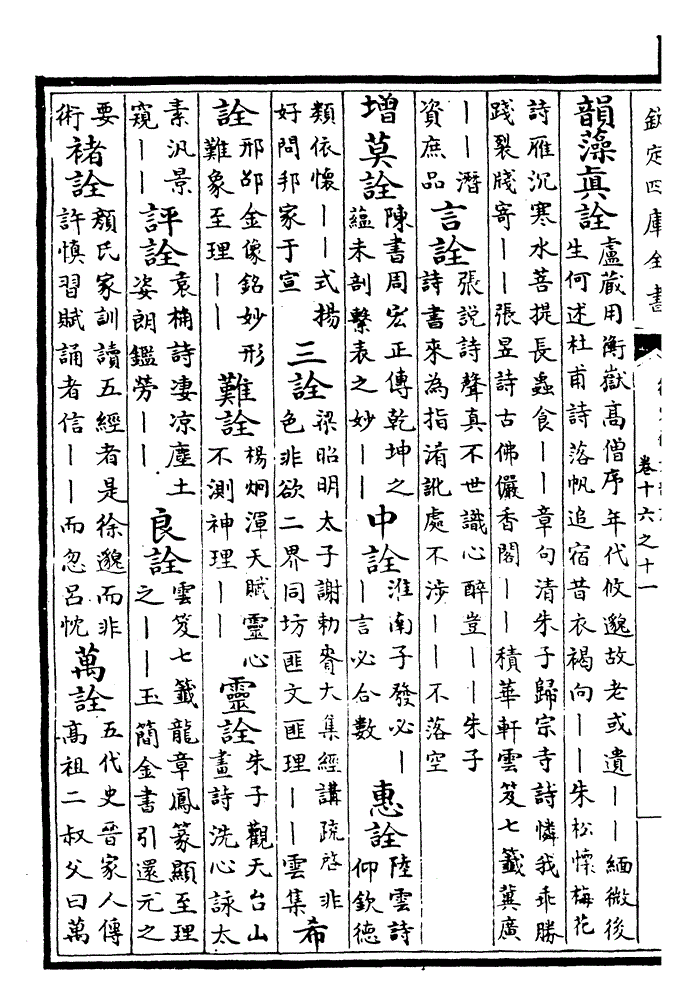 欽定四庫全書
卷十六之十一
韻藻眞詮
盧藏用衡嶽高僧序年代攸邈故老或遺——緬微後
生何述杜甫詩落帆追宿昔衣褐向——朱松懷梅花
詩雁沉寒水菩提長蟲食——章句清朱子歸宗寺詩憐我乖勝
踐裂牋寄——張昱詩古佛儼香閣——積華軒雲笈七籤冀廣
——潛
資庶品
言詮
張説詩聲真不世識心醉豈——朱子
詩書來為指淆訛處不涉——不落空
增
莫詮
陳書周宏正傳乾坤之
蘊未剖繫表之妙——
中詮
淮南子發必—
—言必合數
惠詮
陸雲詩
仰欽德
類依懷——式揚
好問邦家于宣
三詮
梁昭明太子謝勅賚大集經講疏啓非
色非欲二界同坊匪文匪理——雲集
希詮
邢卲金像銘妙形
難象至理——
難詮
楊炯渾天賦靈心
不測神理——
靈詮
朱子觀天台山
畫詩洗心詠太
素汎景
窺——
評詮
袁桷詩凄凉塵土
姿朗鑑勞——
良詮
雲笈七籤龍章鳳篆顯至理
之——玉簡金書引還元之
要
術
褚詮
顏氏家訓讀五經者是徐邈而非
許慎習賦誦者信——而忽呂忱
萬詮
五代史晉家人傳
高祖二叔父曰萬